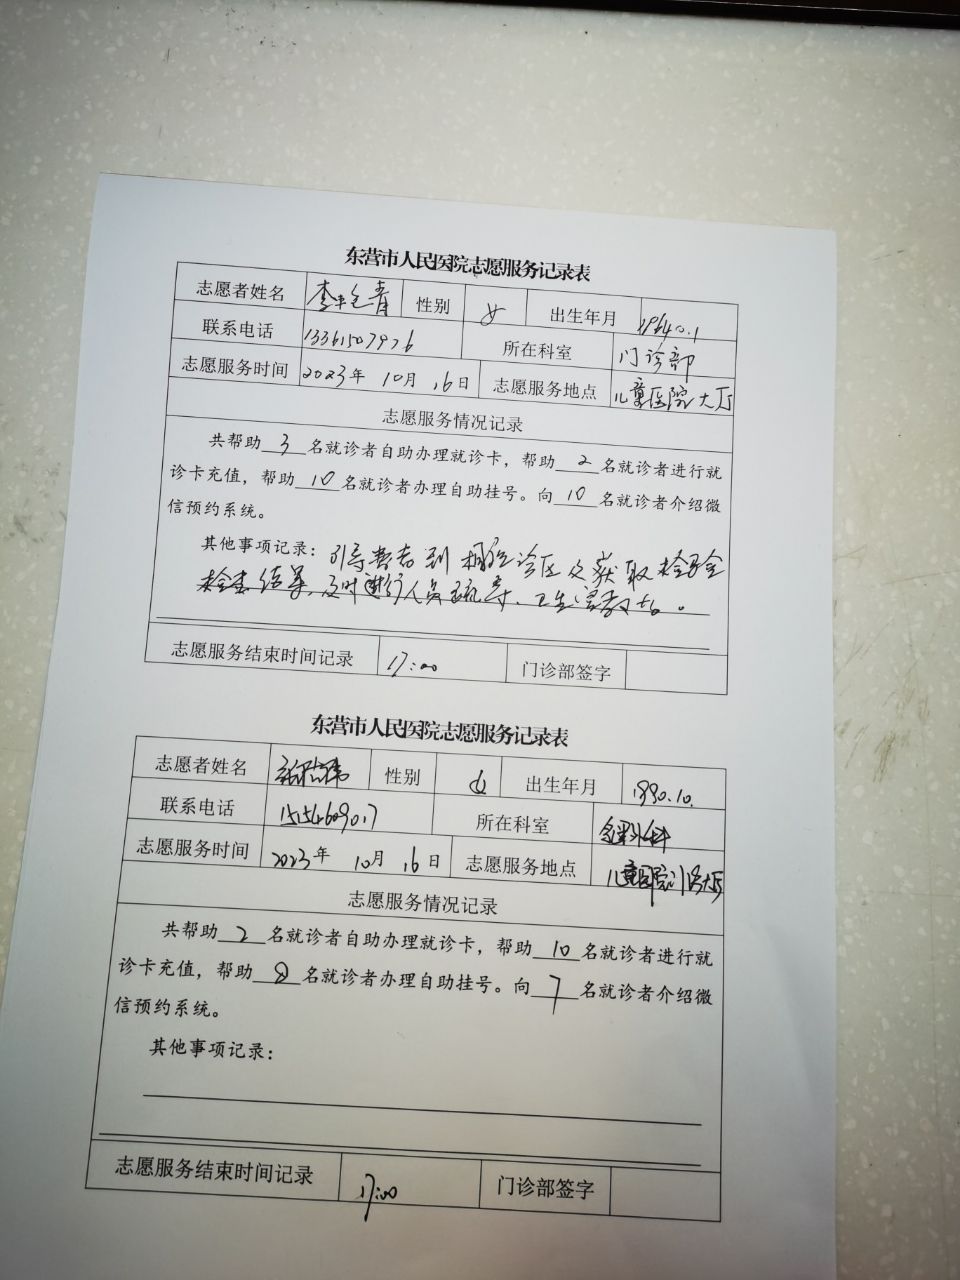 东营市人民医院志愿服务记录表
志愿者姓名 李 青 性别 女 出生年月
联系电话 13361507926 所在科室 门诊部
志愿服务时间 2023年 10月 16日 志愿服务地点 儿童医院大厅
志愿服务情况记录
共帮助 3 名就诊者自助办理就诊卡，帮助 2 名就诊者进行就
诊卡充值，帮助 10 名就诊者办理自助挂号。向 10 名就诊者介绍微
信预约系统。
其他事项记录：引导患者到相应诊区及获取检验
检查结果，及时进行人员疏导、卫生宣教 。
志愿服务结束时间记录 17:00 门诊部签字
东营市人民医院志愿服务记录表
志愿者姓名 性别 女 出生年月 1990.10.
联系电话 所在科室
志愿服务时间 2023年 10月 16日 志愿服务地点 儿童医院门诊大厅
志愿服务情况记录
共帮助 2 名就诊者自助办理就诊卡，帮助 10 名就诊者进行就
诊卡充值，帮助 名就诊者办理自助挂号。向 7 名就诊者介绍微
信预约系统。
其他事项记录：
志愿服务结束时间记录 17:00 门诊部签字